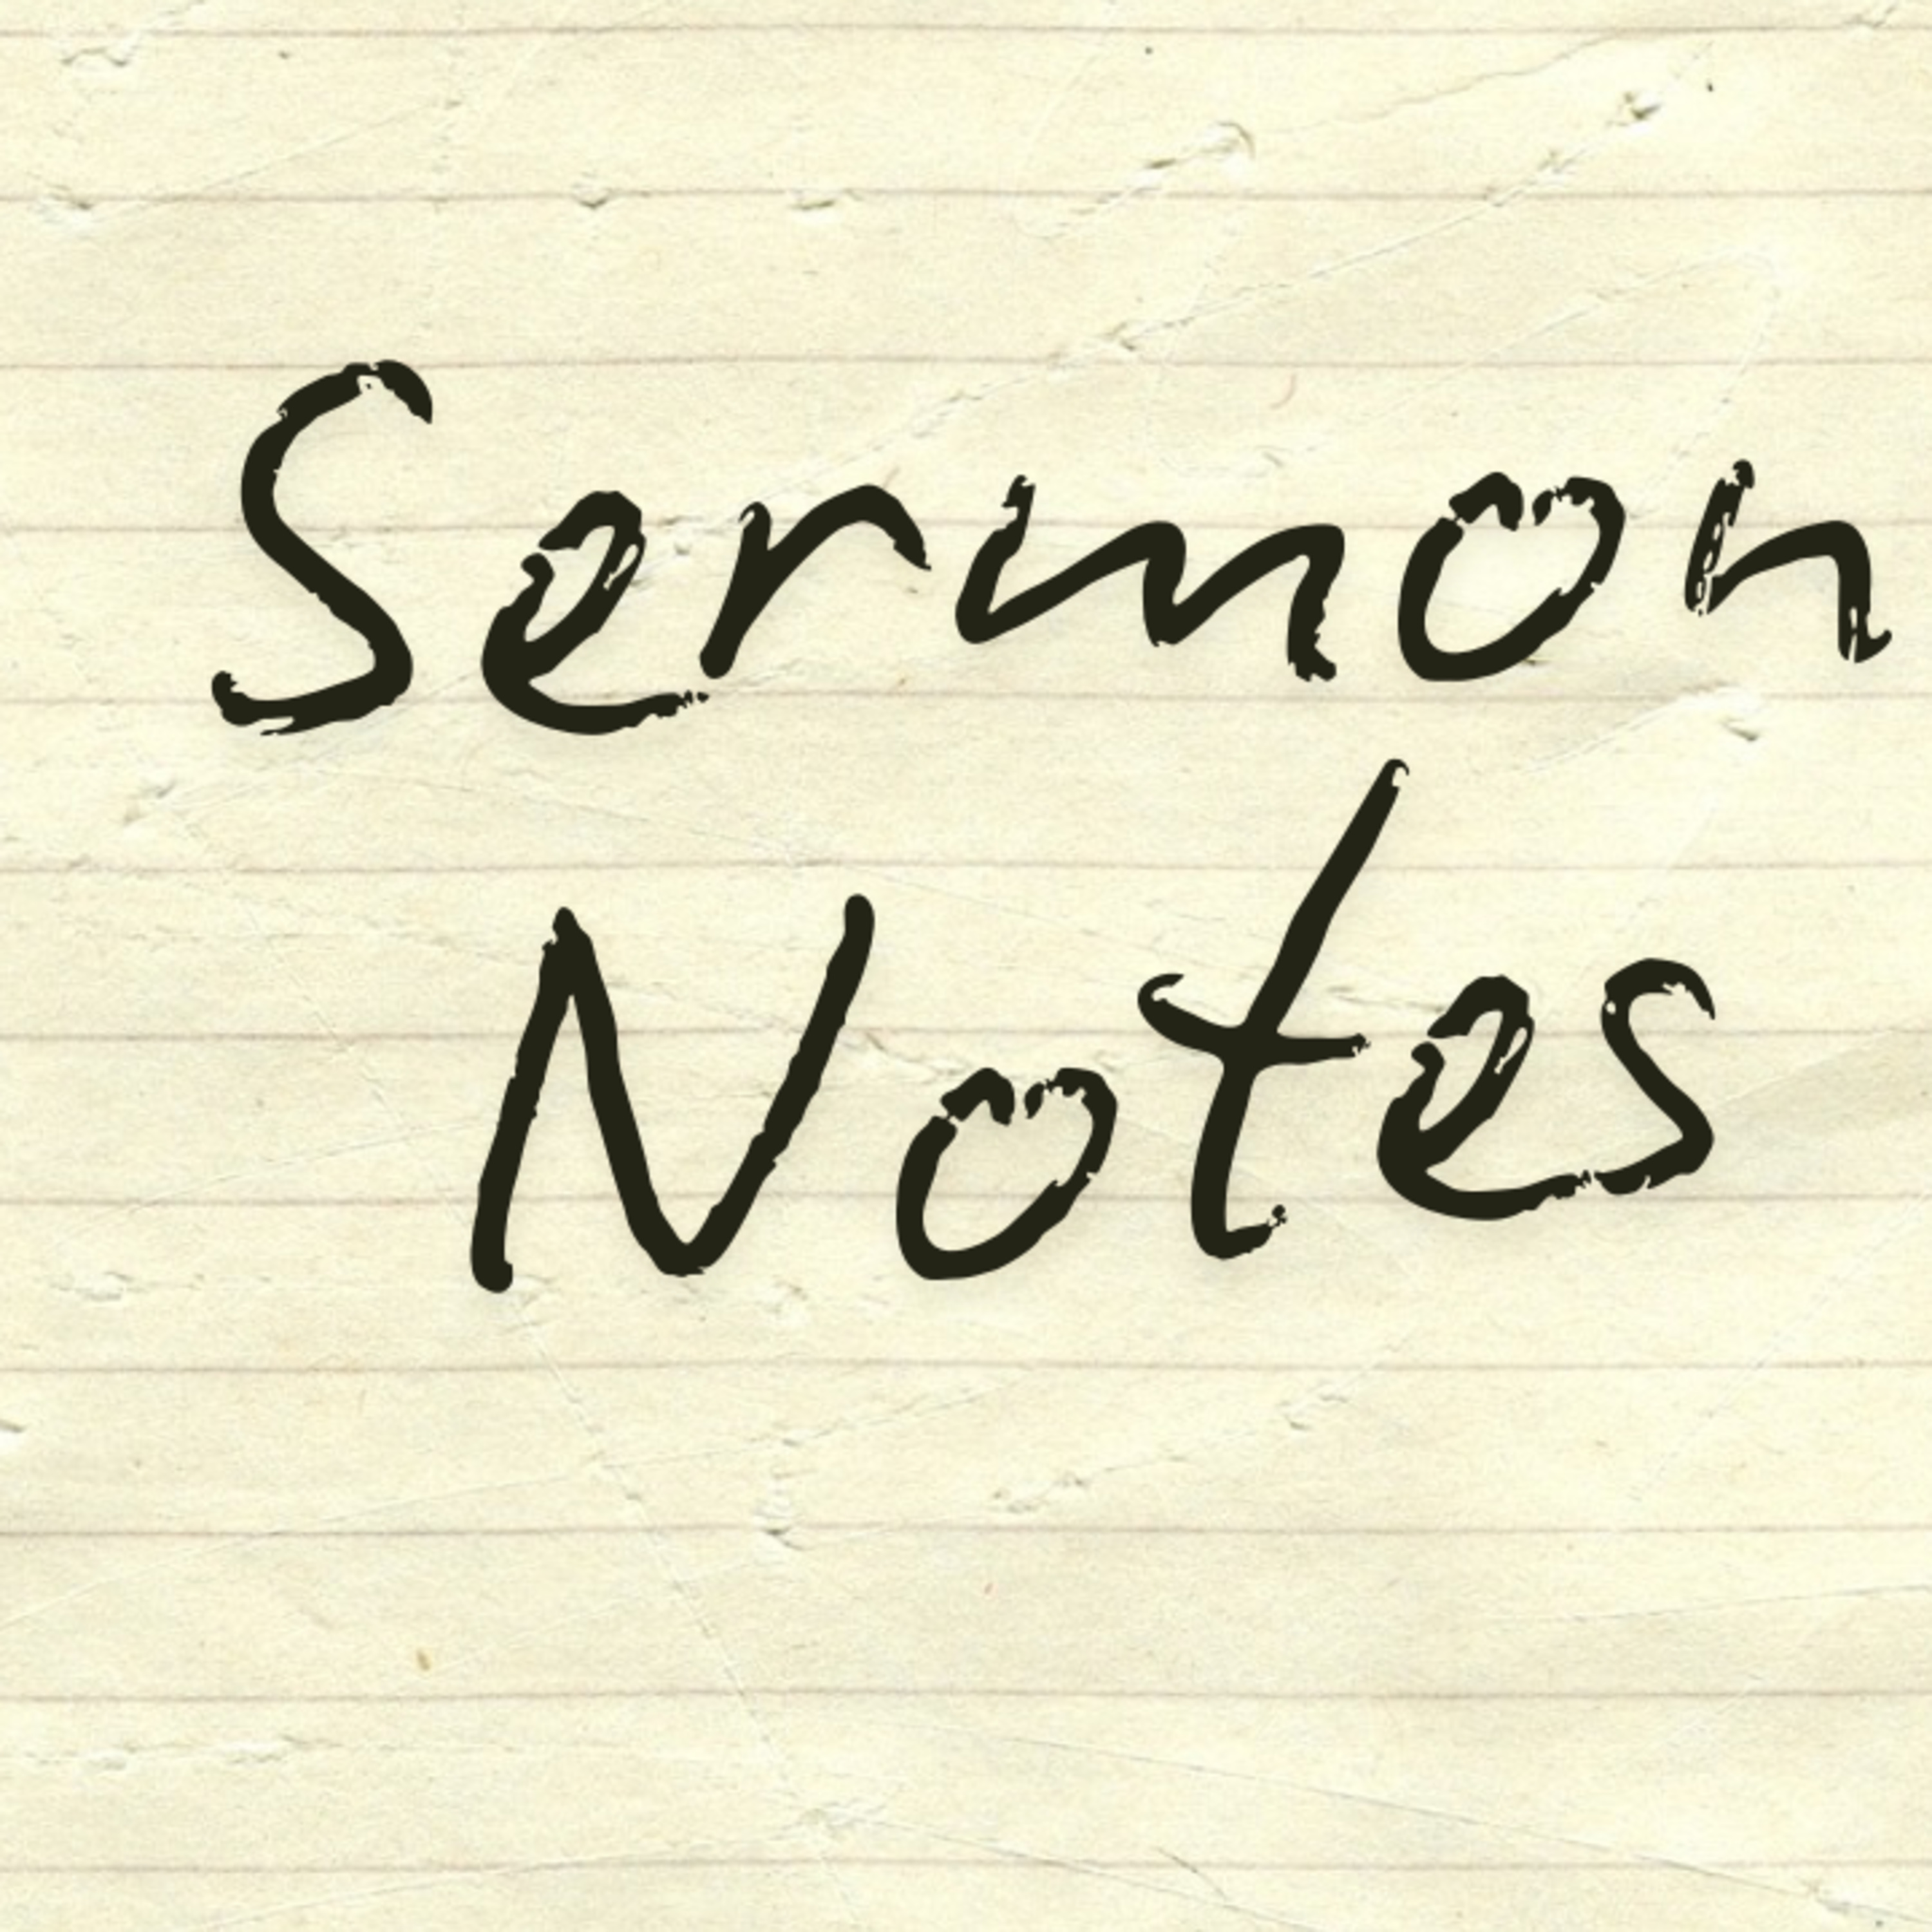 Sermon
Notes